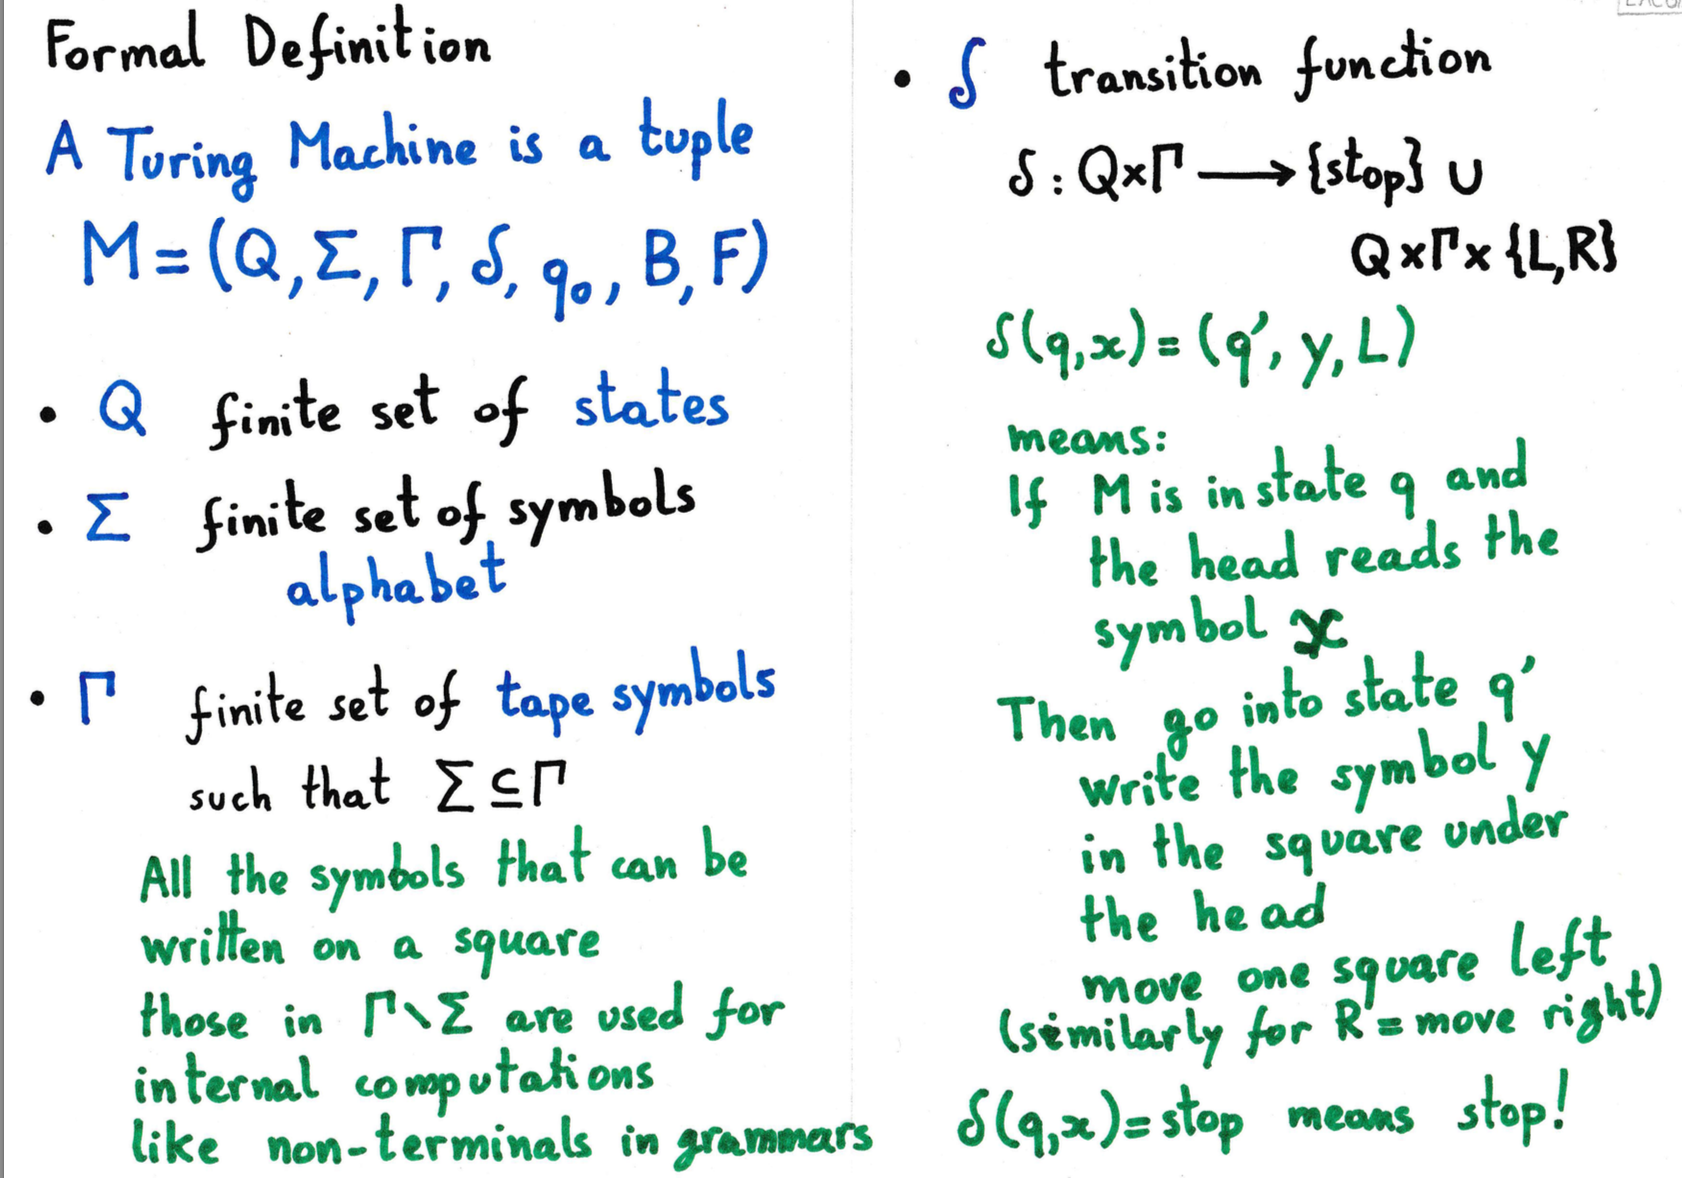 Formal Definition
A Turing Machine is a tuple
M = (Q, Σ, Γ, δ, q₀, B, F)
• Q finite set of states
• Σ finite set of symbols
alphabet
• Γ finite set of tape symbols
such that Σ ⊆ Γ
All the symbols that can be
written on a square
those in Γ∖Σ are used for
internal computations
like non-terminals in grammars
• δ transition function
δ : Q×Γ ⟶ {stop} ∪
Q×Γ×{L,R}
δ(q,x) = (q′, y, L)
means:
If M is in state q and
the head reads the
symbol x
Then go into state q′
write the symbol y
in the square under
the head
move one square left
(similarly for R = move right)
δ(q,x) = stop means stop!